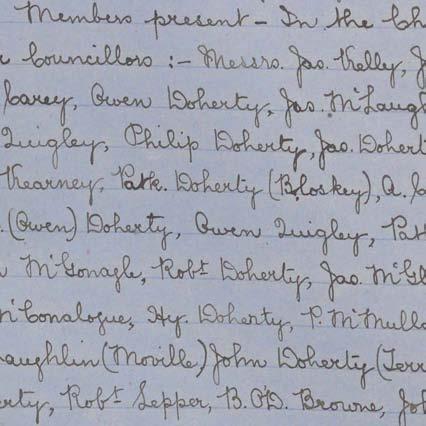 Members present - In the Ch
Councillors :- Messrs. Jas. Kelly, J
Carey, Owen Doherty, Jas. McLaugh
Quigley, Philip Doherty, Jas. Dohert
Kearney, Patk. Doherty (Bloskey), A. 
. (Owen) Doherty, Owen Quigley, Pat
McGonagle, Robt Doherty, Jas. McGl
McConalogue, Hy. Doherty, P. McMull
aughlin (Moville,) John Doherty (Terr
erty, Robt Lepper, B. O'D. Browne, Jo